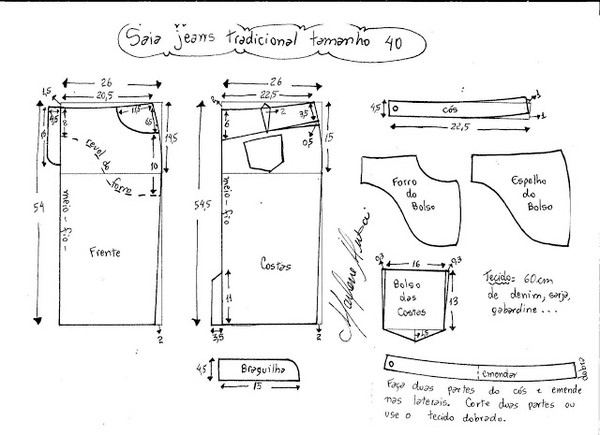 Saia jeans tradicional tamanho 40
26
20,5
1,5
4,5
2
11,5
6,5
6
19,5
10
revel do
forro
54
meio-fio
Frente
2
26
22,5
3
2
3,5
6
0,5
15
54,5
meio-fio
Costas
11
3,5
2
Braguilha
4,5
15
Marlene Mukai
4,5
cós
1
1
22,5
Forro
do
Bolso
Espelho
do
Bolso
0,3
16
0,3
Bolso
das
Costas
13
Tecido= 60cm
de denim, sarja,
gabardine...
emendar
dobra
Faça duas partes do cós e emende
nas laterais. Corte duas partes ou
use o tecido dobrado.